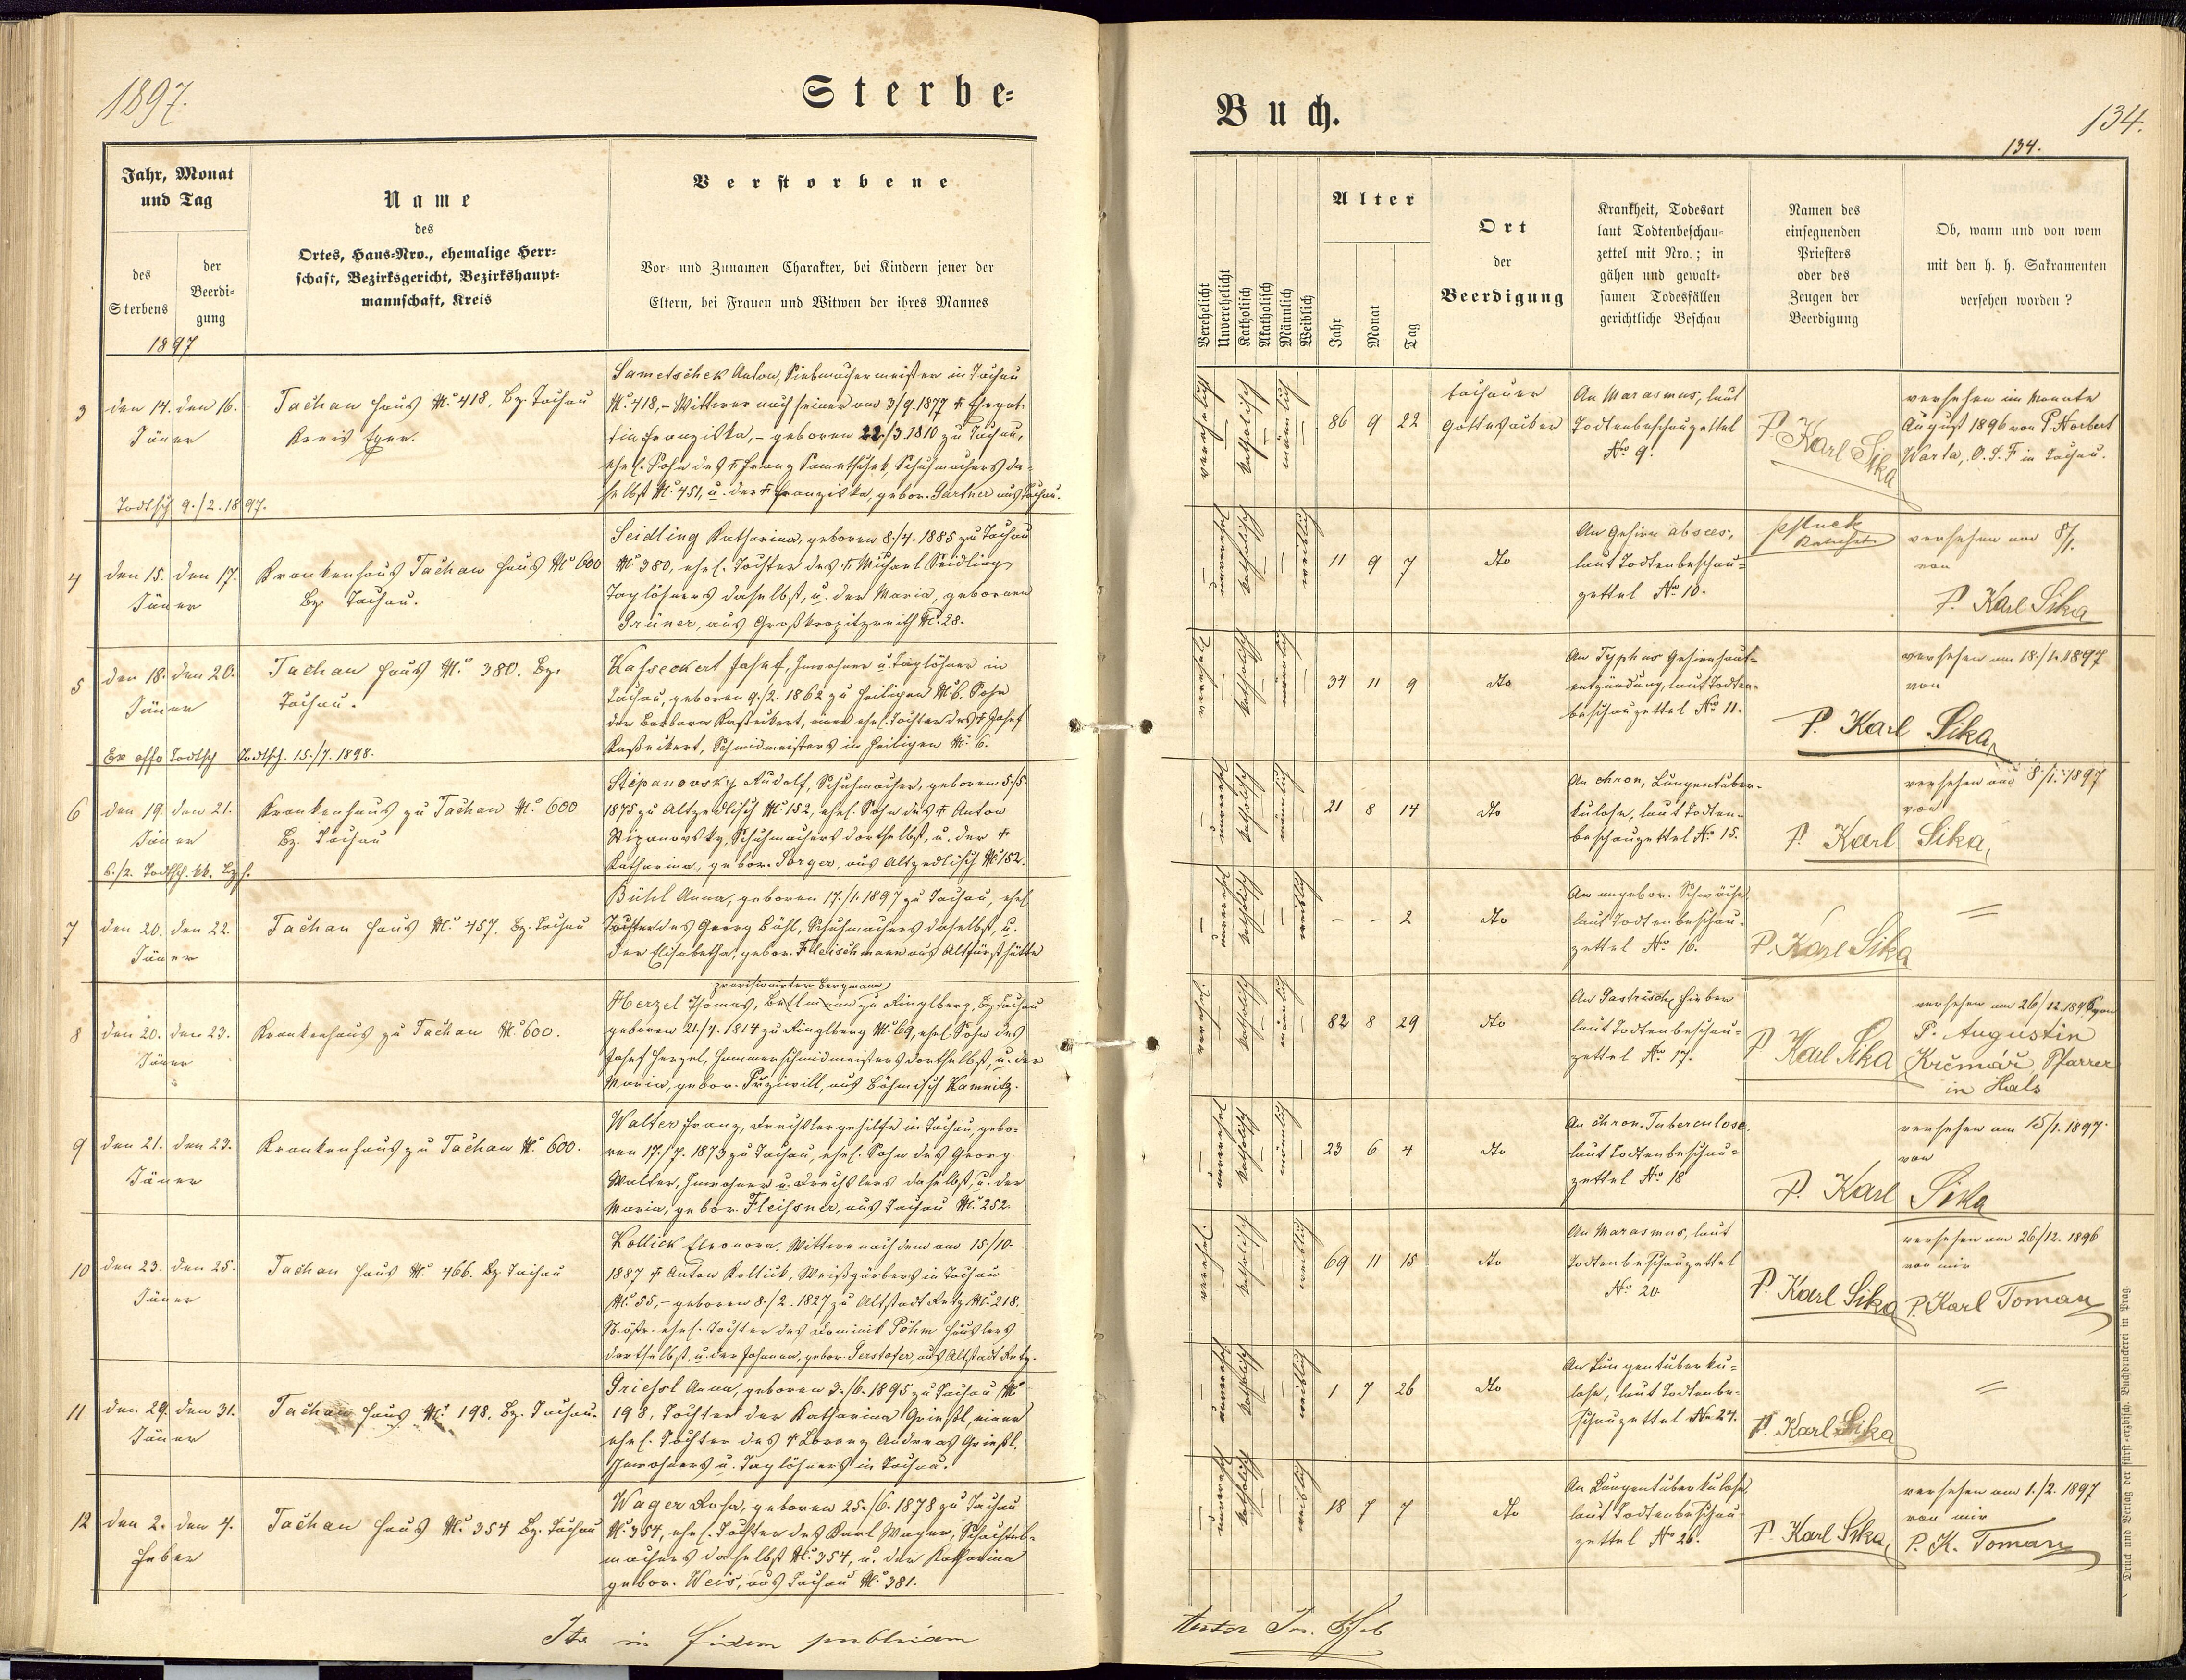 1897.
Sterbe=
Jahr, Monat
und Tag
des
Sterbens
der
Beerdi=
gung
1897
Name
des
Ortes, Haus=Nro., ehemalige Herr=
schaft, Bezirksgericht, Bezirkshaupt=
mannschaft, Kreis
Verstorbene
Vor= und Zunamen Charakter, bei Kindern jener der
Eltern, bei Frauen und Witwen der ihres Mannes
3
den 14. den 16.
Jäner
Todtsch 9./2. 1897.
Tachau Haus N° 418. Bz. Tachau
Kreis Eger.
Sametschek Anton, Siebmachermeister in Tachau
N° 418, – Wittwer nach seiner am 3/9. 1877 † Ehegat-
tin Franziska, – geboren 22./3. 1810 zu Tachau,
ehel. Sohn des † Franz Samethschek, Schuhmachers da-
selbst N° 451, u. der † Franziska, gebor. Gärtner aus Tachau.
4
den 15. den 17.
Jäner
Krankenhaus Tachau Haus N° 600
Bz. Tachau.
Seidling Katharina, geboren 8./4. 1885 zu Tachau
N° 380, ehel. Tochter des † Michael Seidling
Taglöhners daselbst, u. der Maria, gebornen
Grüner, aus Großkropitzreith N° 28.
5
den 18. den 20.
Jäner
Ex offo Todtsch Todtsch. 15./7. 1898.
Tachau Haus N° 380. Bz.
Tachau.
Kasseckert Josef, Inwohner u. Taglöhner in
Tachau, geboren 9./2. 1862 zu Heiligen N° 6. Sohn
der Barbara Kasseckert, einer ehel. Tochter des † Josef
Kasseckert, Schmidmeisters in Heiligen N° 6.
6
den 19. den 21.
Jäner
6./2. Todtsch. kk. Bzh.
Krankenhaus zu Tachau N° 600
Bz. Tachau
Stipanovsky Rudolf, Schuhmacher, geboren 5./5.
1875 zu Altzedlisch N° 152, ehel. Sohn des † Anton
Stipanovsky, Schuhmachers dortselbst, u. der †
Katharina, gebor. Sorger, aus Altzedlisch N° 152.
7
den 20. den 22.
Jäner
Tachau Haus N° 457. Bz. Tachau
Bühl Anna, geboren 17./1. 1897 zu Tachau, ehel
Tochter des Georg Bühl, Schuhmachers daselbst, u.
der Elisabetha, gebor. Fleischmann aus Altfürsthütte
8
den 20. den 23.
Jäner
Krankenhaus zu Tachau N° 600.
provisionirter Bergmann
Herzel Thomas, Bettmann zu Ringlberg, Bz. Tachau
geboren 21/4. 1814 zu Ringlberg N° 69, ehel. Sohn des
Josef Herzel, Hammerschmidmeisters dortselbst, u. der
Maria, gebor. Przinwill, aus Böhmisch Kamnitz.
9
den 21. den 23.
Jäner
Krankenhaus zu Tachau N° 600.
Walter Franz, Drechslergehilfe in Tachau, gebo-
ren 17./7. 1873 zu Tachau, ehel. Sohn des Georg
Walter, Inwohner u. Drechslers daselbst, u. der
Maria, gebor. Fleissner, aus Tachau N° 252.
10
den 23. den 25.
Jäner
Tachau Haus N° 466. Bz. Tachau
Kollick Eleonora, Wittwe nach dem am 15/10.
1887 † Anton Kollick, Weißgärbers in Tachau
N° 55, – geboren 8./2. 1827 zu Altstadt Retz N° 218,
N. östr. ehel. Tochter des Dominik Pöhm Häuslers
dortselbst, u. der Johanna, gebor. Gerstofer, aus Altstadt Retz.
11
den 29. den 31.
Jäner
Tachau Haus N° 198. Bz. Tachau.
Griessl Anna, geboren 3./6. 1895 zu Tachau N°
198, Tochter der Katharina Griessl, einer
ehel. Tochter des † Lorenz Andreas Griessl.
Inwohners u. Taglöhners in Tachau.
12
den 2. den 4.
Feber
Tachau Haus N° 354 Bz. Tachau
Wager Rosa, geboren 25./6. 1878 zu Tachau
N° 354, ehel. Tochter des Karl Wager, Schachtel-
machers daselbst N° 354, u. der Katharina
gebor. Weis, aus Tachau N° 381.
Ita in fidem publicam
Buch.
134.
134.
Verehelicht
Unverehelicht
Katholisch
Akatholisch
Männlich
Weiblich
Alter
Jahr
Monat
Tag
Ort
der
Beerdigung
Krankheit, Todesart
laut Todtenbeschau=
zettel mit Nro.; in
gähen und gewalt=
samen Todesfällen
gerichtliche Beschau
Namen des
einsegnenden
Priesters
oder des
Zeugen der
Beerdigung
Ob, wann und von wem
mit den h. h. Sakramenten
versehen worden?
verehelicht – katholisch – männlich –
86 9 22
tachauer
Gottesacker
An Marasmus, laut
Todtenbeschauzettel
No 9.
P. Karl Sika
versehen im Monate
August 1896 von P. Norbert
Warta, O. S. F in Tachau.
– unverehel katholisch – – weiblich
11 9 7
dto
An Gehirn absces,
laut Todtenbeschau=
zettel No 10.
versehen am 8/1.
von
P. Karl Sika
– katholisch – männlich –
34 11 9
dto
An Typhus Gehirnhaut-
entzündung, laut Todten-
beschauzettel No 11.
P. Karl Sika
versehen am 18./1. 1897
von
– unverehel katholisch – männlich –
21 8 14
dto
An chron, Lungentuber-
kulose, laut Todten-
beschauzettel No 15.
P. Karl Sika
versehen am 8./1. 1897
von
– unverehel katholisch – – weiblich
– – 2
dto
An angebor. Schwäche
laut Todtenbeschau-
zettel No 16.
P. Karl Sika
=
verehel. – katholisch – männlich –
82 8 29
dto
An Gastrisches Fieber
laut Todtenbeschau-
zettel No 17.
P Karl Sika
versehen am 26/12. 1896 von
P. Augustin
Krčmář, Pfarrer
in Hals
– unverehel katholisch – männlich –
23 6 4
dto
An chron. Tuberculose.
laut Todtenbeschau=
zettel No 18
P. Karl Sika
versehen am 15/1. 1897.
von
verehel. – katholisch – – weiblich
69 11 15
dto
An Marasmus, laut
Todtenbeschauzettel
No 20
P. Karl Sika
versehen am 26/12. 1896
von mir
P. Karl Toman
– unverehel katholisch – – weiblich
1 7 26
dto
An Lungentuberku=
lose, laut Todtenbe-
schauzettel No 24.
P. Karl Sika
=
– unverehel katholisch – – weiblich
18 7 7
dto
An Lungentuberkulose
laut Todtenbeschau-
zettel No 26.
P. Karl Sika
versehen am 1./2. 1897
von mir
P. K. Toman
Druck und Verlag der fürst=erzbisch. Buchdruckerei in Prag.